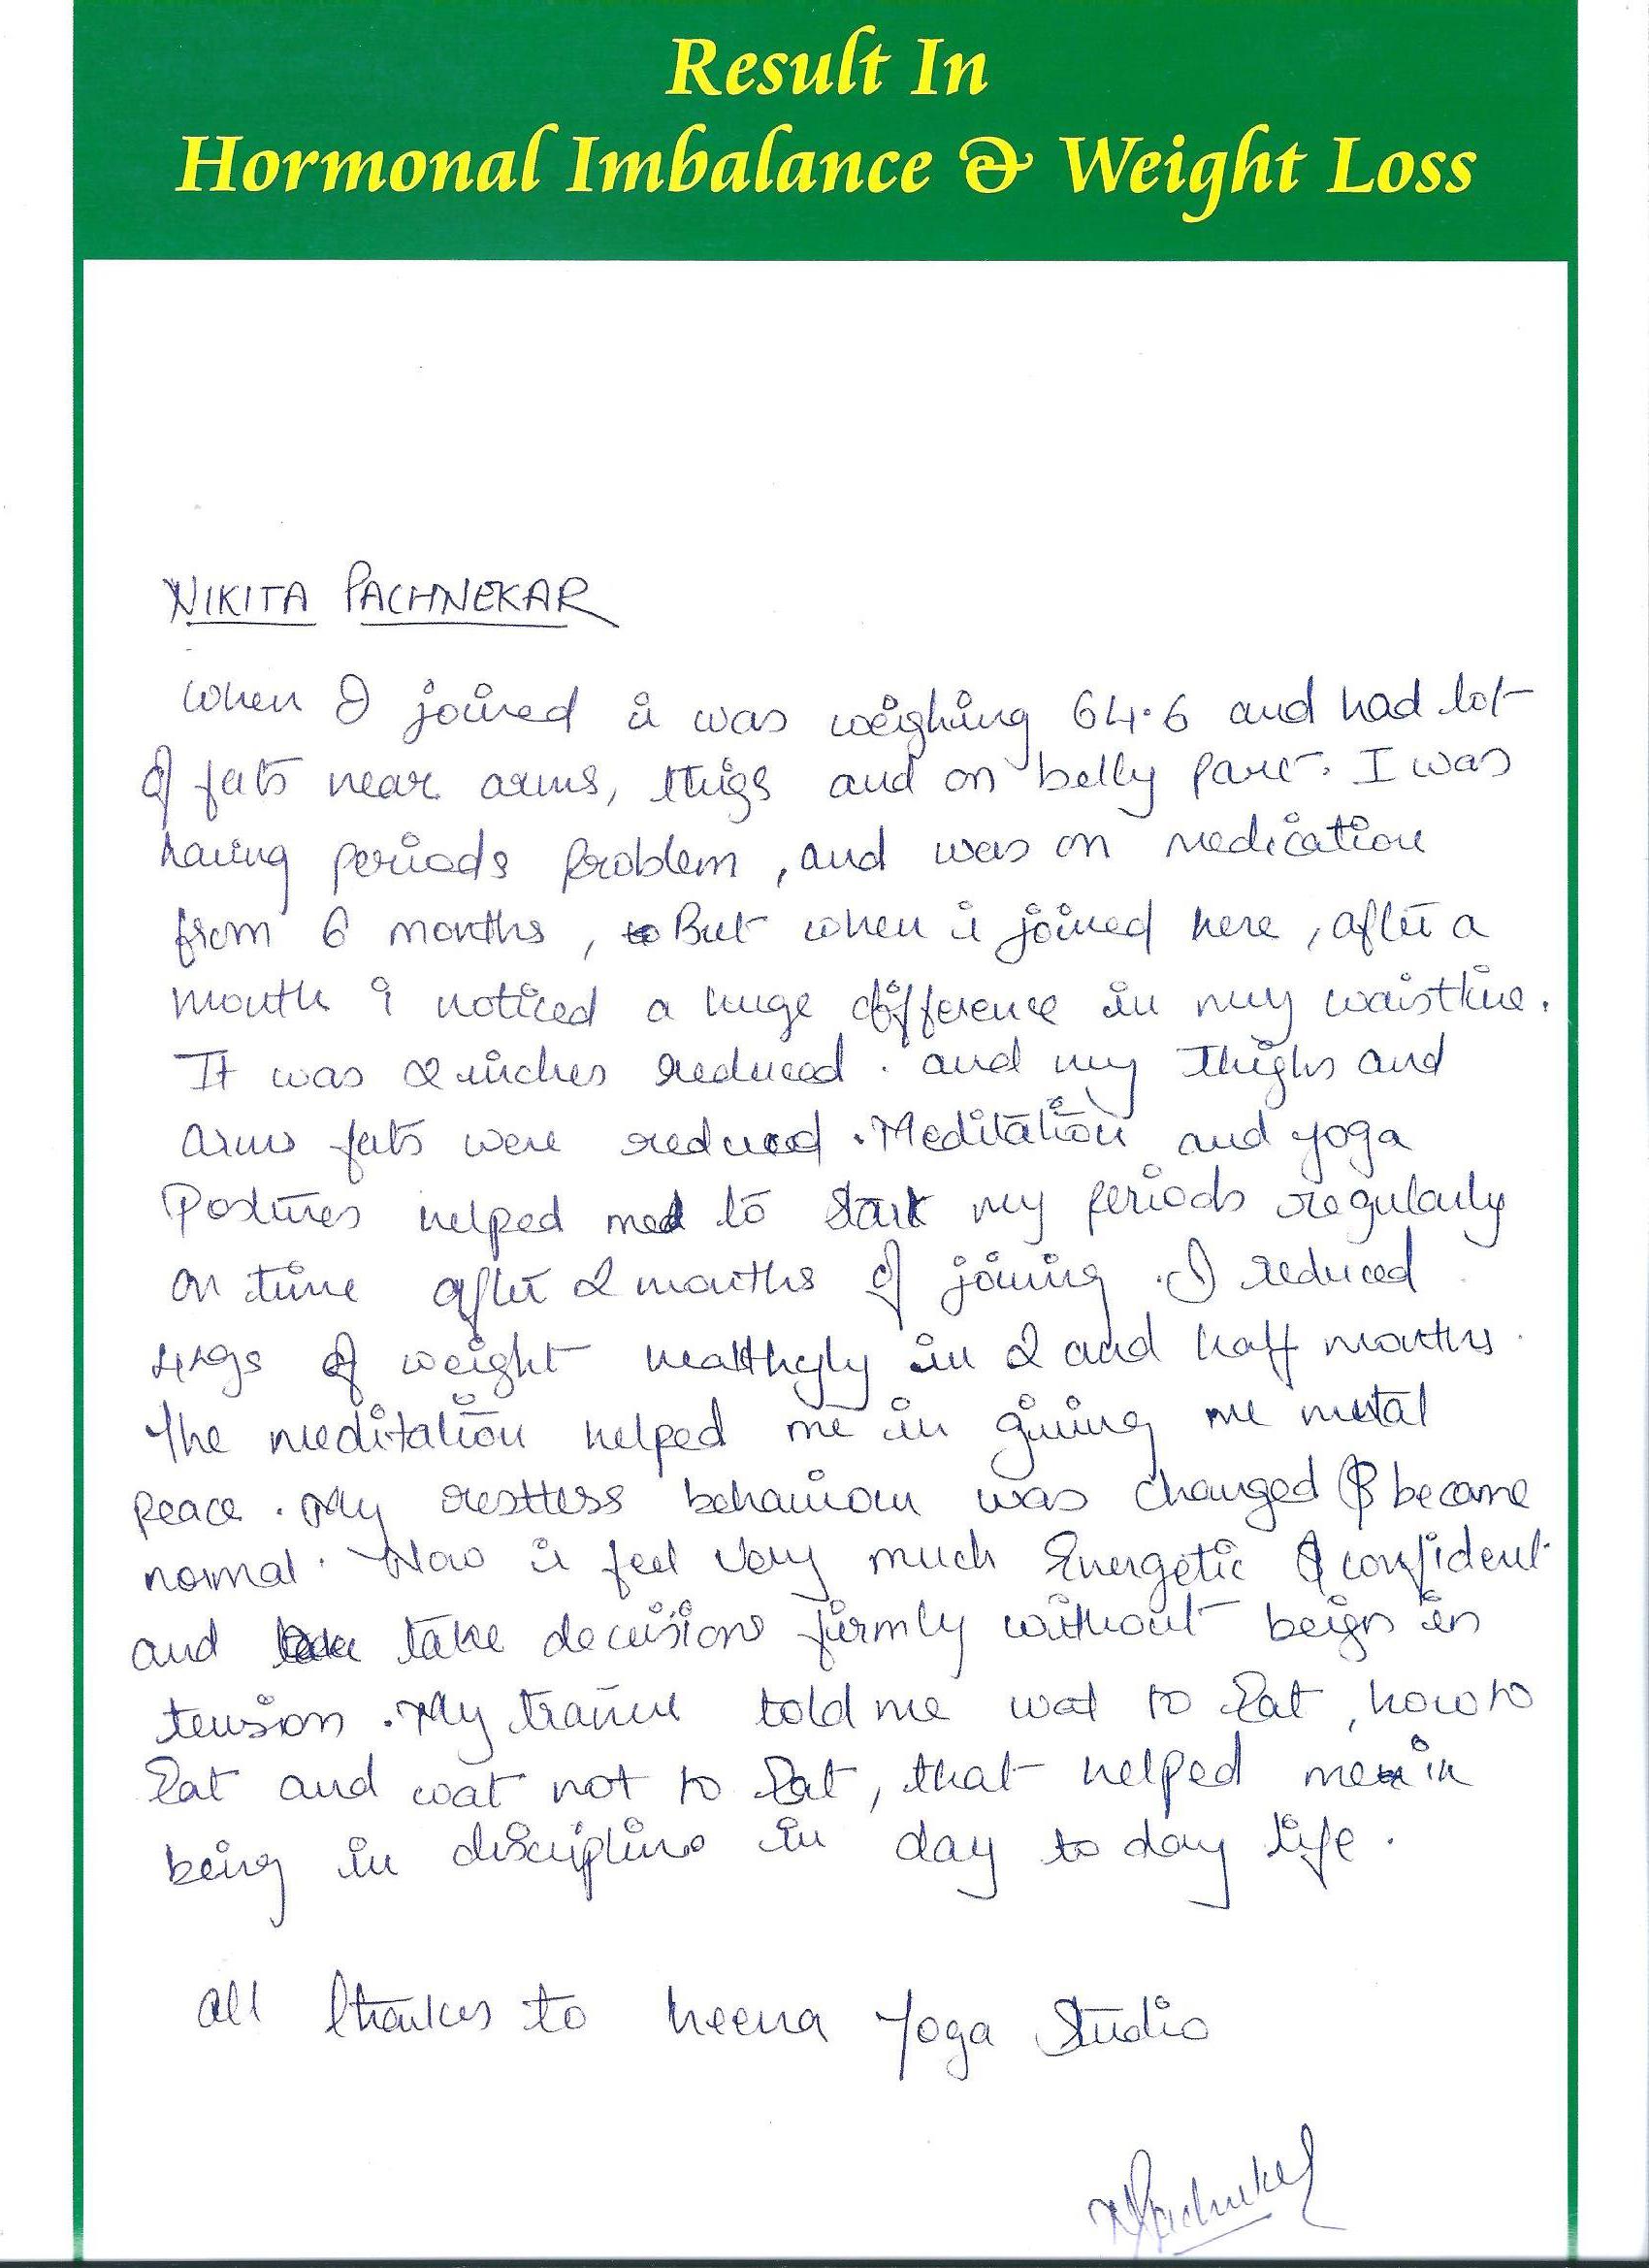 Result In
Hormonal Imbalance & Weight Loss
NIKITA PACHNEKAR
When I joined i was weighing 64.6 and had lot
of fats near arms, thigs and on belly part. I was
having periods problem, and was on medication
from 6 months, But when i joined here, after a
month i noticed a huge difference in my waistline.
It was 2 inches reduced. and my Thighs and
arms fats were reduced. Meditation and yoga
Postures helped me to start my periods regularly
on time after 2 months of joining. I reduced
4kgs of weight healthyly in 2 and half months.
The meditation helped me in giving me metal
peace. My restless behaviour was changed & became
normal. Now i feel very much Energetic & confident
and take decisions firmly without beign in
tension. My trainer told me wat to Eat, how to
Eat and wat not to Eat, that helped me in
being in discipline in day to day life.
All thankes to heena Yoga Studio